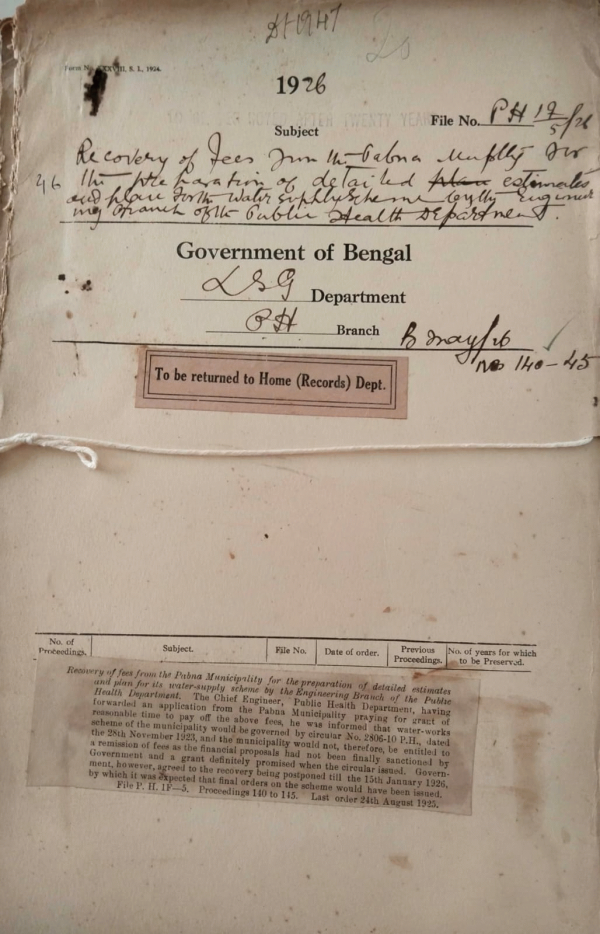 1926
File No. PH 1F/5/26
Subject
Recovery of Fees from the Pabna Muplty for
the preparation of detailed plan estimates
and plan for the water supply scheme by the Engineer
ing Branch of the Public Health Department.
Government of Bengal
LSG Department
PH Branch
B May/26
No 140-45
To be returned to Home (Records) Dept.
No. of Proceedings. Subject. File No. Date of order. Previous Proceedings. No. of years for which to be Preserved.
Recovery of fees from the Pabna Municipality for the preparation of detailed estimates
and plan for its water-supply scheme by the Engineering Branch of the Public
Health Department. The Chief Engineer, Public Health Department, having
forwarded an application from the Pabna Municipality praying for grant of
reasonable time to pay off the above fees, he was informed that water-works
scheme of the municipality would be governed by circular No. 2806-10 P.H., dated
the 28th November 1923, and the municipality would not, therefore, be entitled to
a remission of fees as the financial proposals had not been finally sanctioned by
Government and a grant definitely promised when the circular issued. Govern-
ment, however, agreed to the recovery being postponed till the 15th January 1926,
by which it was expected that final orders on the scheme would have been issued.
File P. H. 1F—5. Proceedings 140 to 145. Last order 24th August 1925.